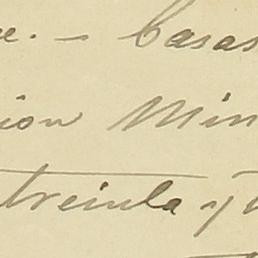 e. — Casas
ion Min
treinta y